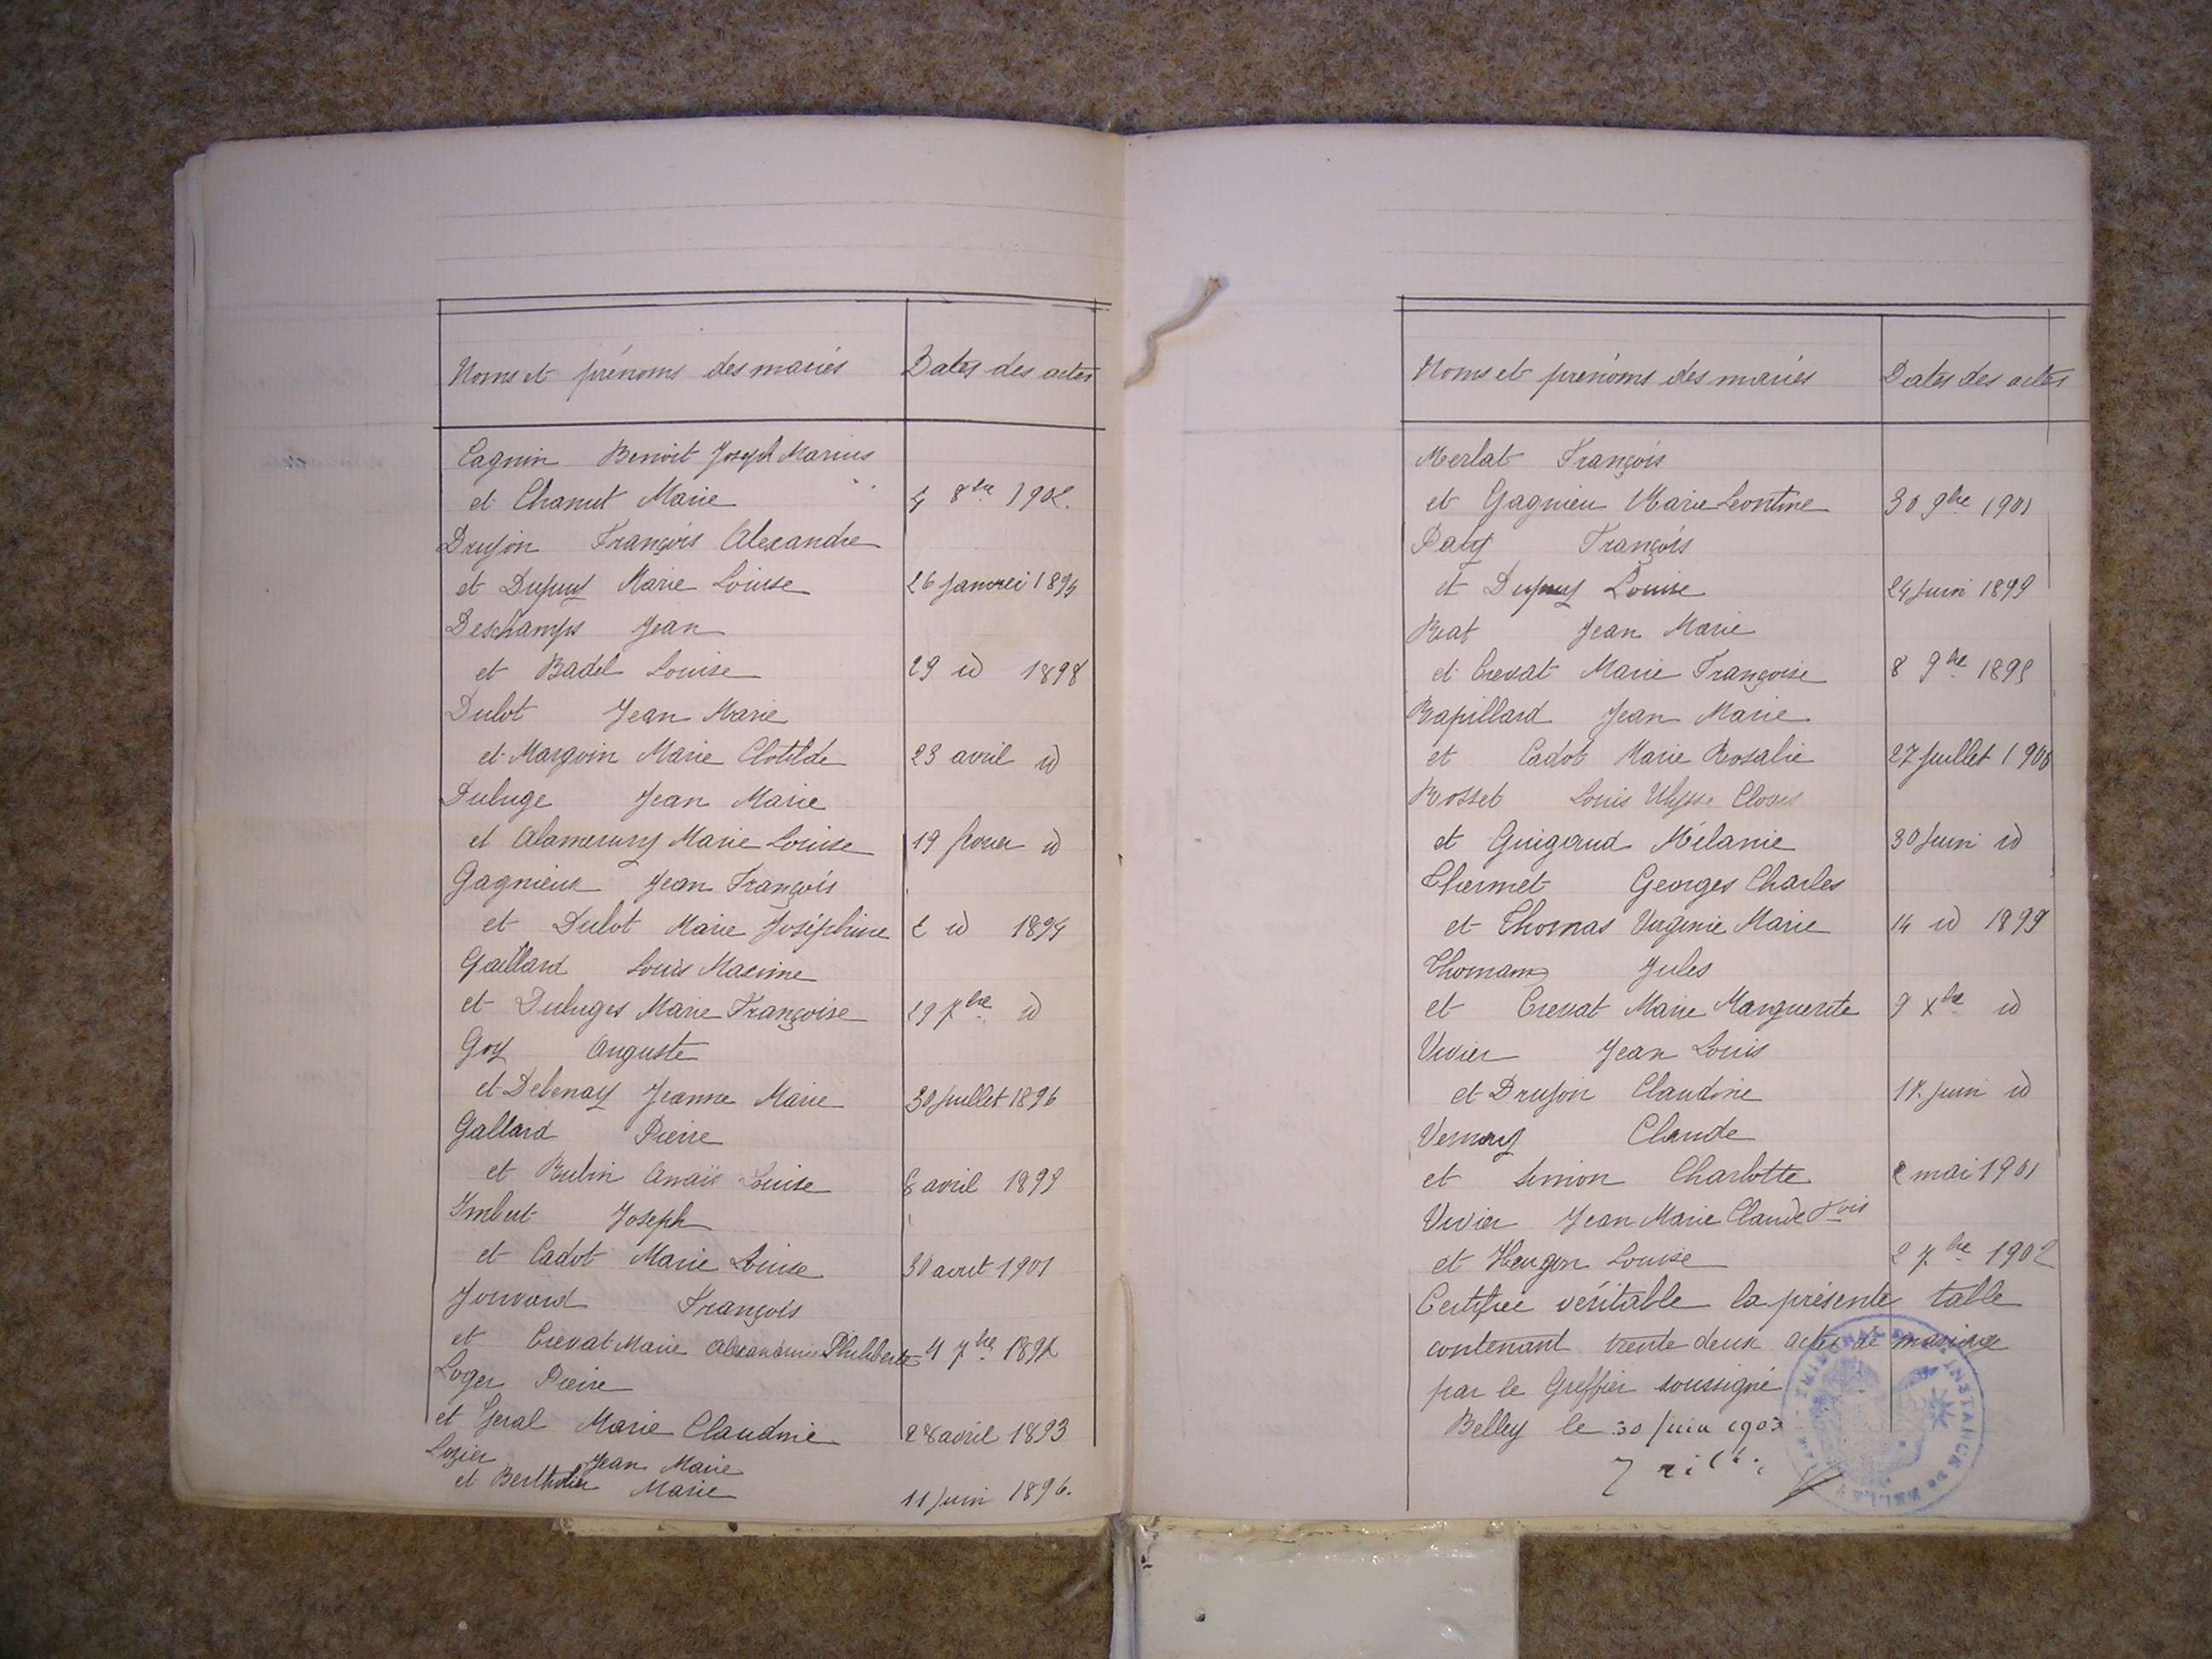 Noms et prénoms des mariés Dates des actes
Cagnin Benoit Joseph Marius
et Chanut Marie 4 8bre 1902.
Drujon François Alexandre
et Dupuy Marie Louise 26 Janvier 1894
Deschamps Jean
et Badel Louise 29 id 1898
Dulot Jean Marie
et Margoin Marie Clotilde 23 avril id
Duluge Jean Marie
et Alamercery Marie Louise 19 id
Gagnieux Jean François
et Dulot Marie Joséphine 2 id 1894
Gaillard Louis Maxime
et Duluges Marie Françoise 29 7bre id
Goy Auguste
et Debenay Jeanne Marie 30 Juillet 1896
Gallard Pierre
et Rubin Anaïs Louise 8 avril 1899
Imbert Joseph
et Cadot Marie Louise 30 aout 1901
Jouvard François
et Crevat Marie Alexandrine Philiberte 4 7bre
Loger Pierre
et Geral Marie Claudine 28 avril 1893
Lozier Jean Marie
et Bertholier Marie 11 Juin 1896.
Noms et prénoms des mariés Dates des actes
Merlat François
et Gagnieu Marie Leontine 30 9bre 1901
François
et Dupuy Louise 24 Juin 1899
Reat Jean Marie
et Crevat Marie Françoise 8 9bre
Rapillard Jean Marie
et Cadot Marie Rosalie 27 Juillet 1900
Rosset Louis Ulysse Clovis
et Guigard Mélanie 30 Juin id
Thermet Georges Charles
et Thomas Virginie Marie 14 id 1899
Thomam Jules
et Crevat Marie Marguerite 9 Xbre id
Vivier Jean Louis
et Drujon Claudine 17 Juin id
Vernay Claude
et Simon Charlotte 2 mai 1901
Vivier Jean Marie Claude Fois
et Heugon Louise 2 7bre 1902
Certifiée véritable la présente table
contenant trente deux actes de mariage
par le Greffier soussigné
Belley le 30 Juin 1903